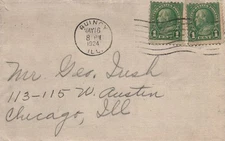 QUINCY
MAY 16
8 PM
1924
ILL.
1 1
1 1
Mr Geo. Lush
113-115 W. Austin
Chicago, Ill